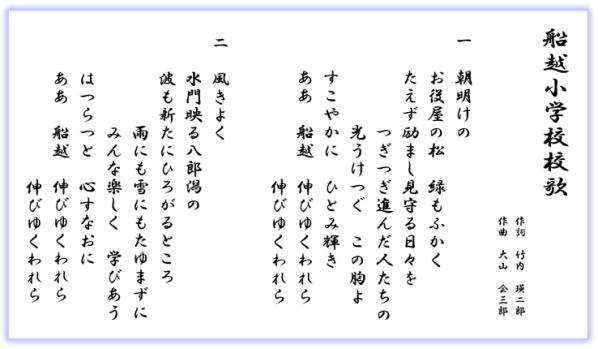 船越小学校校歌
作詞 竹内 瑛二郎
作曲 大山 会三郎
一 朝明けの
お役屋の松 緑もふかく
たえず励まし見守る日々を
つぎつぎ進んだ人たちの
光うけつぐ この胸よ
すこやかに ひとみ輝き
ああ 船越 伸びゆくわれら
伸びゆくわれら
二 風きよく
水門映る八郎潟の
波も新たにひろがるところ
雨にも雪にもたゆまずに
みんな楽しく 学びあう
はつらつと 心すなおに
ああ 船越 伸びゆくわれら
伸びゆくわれら